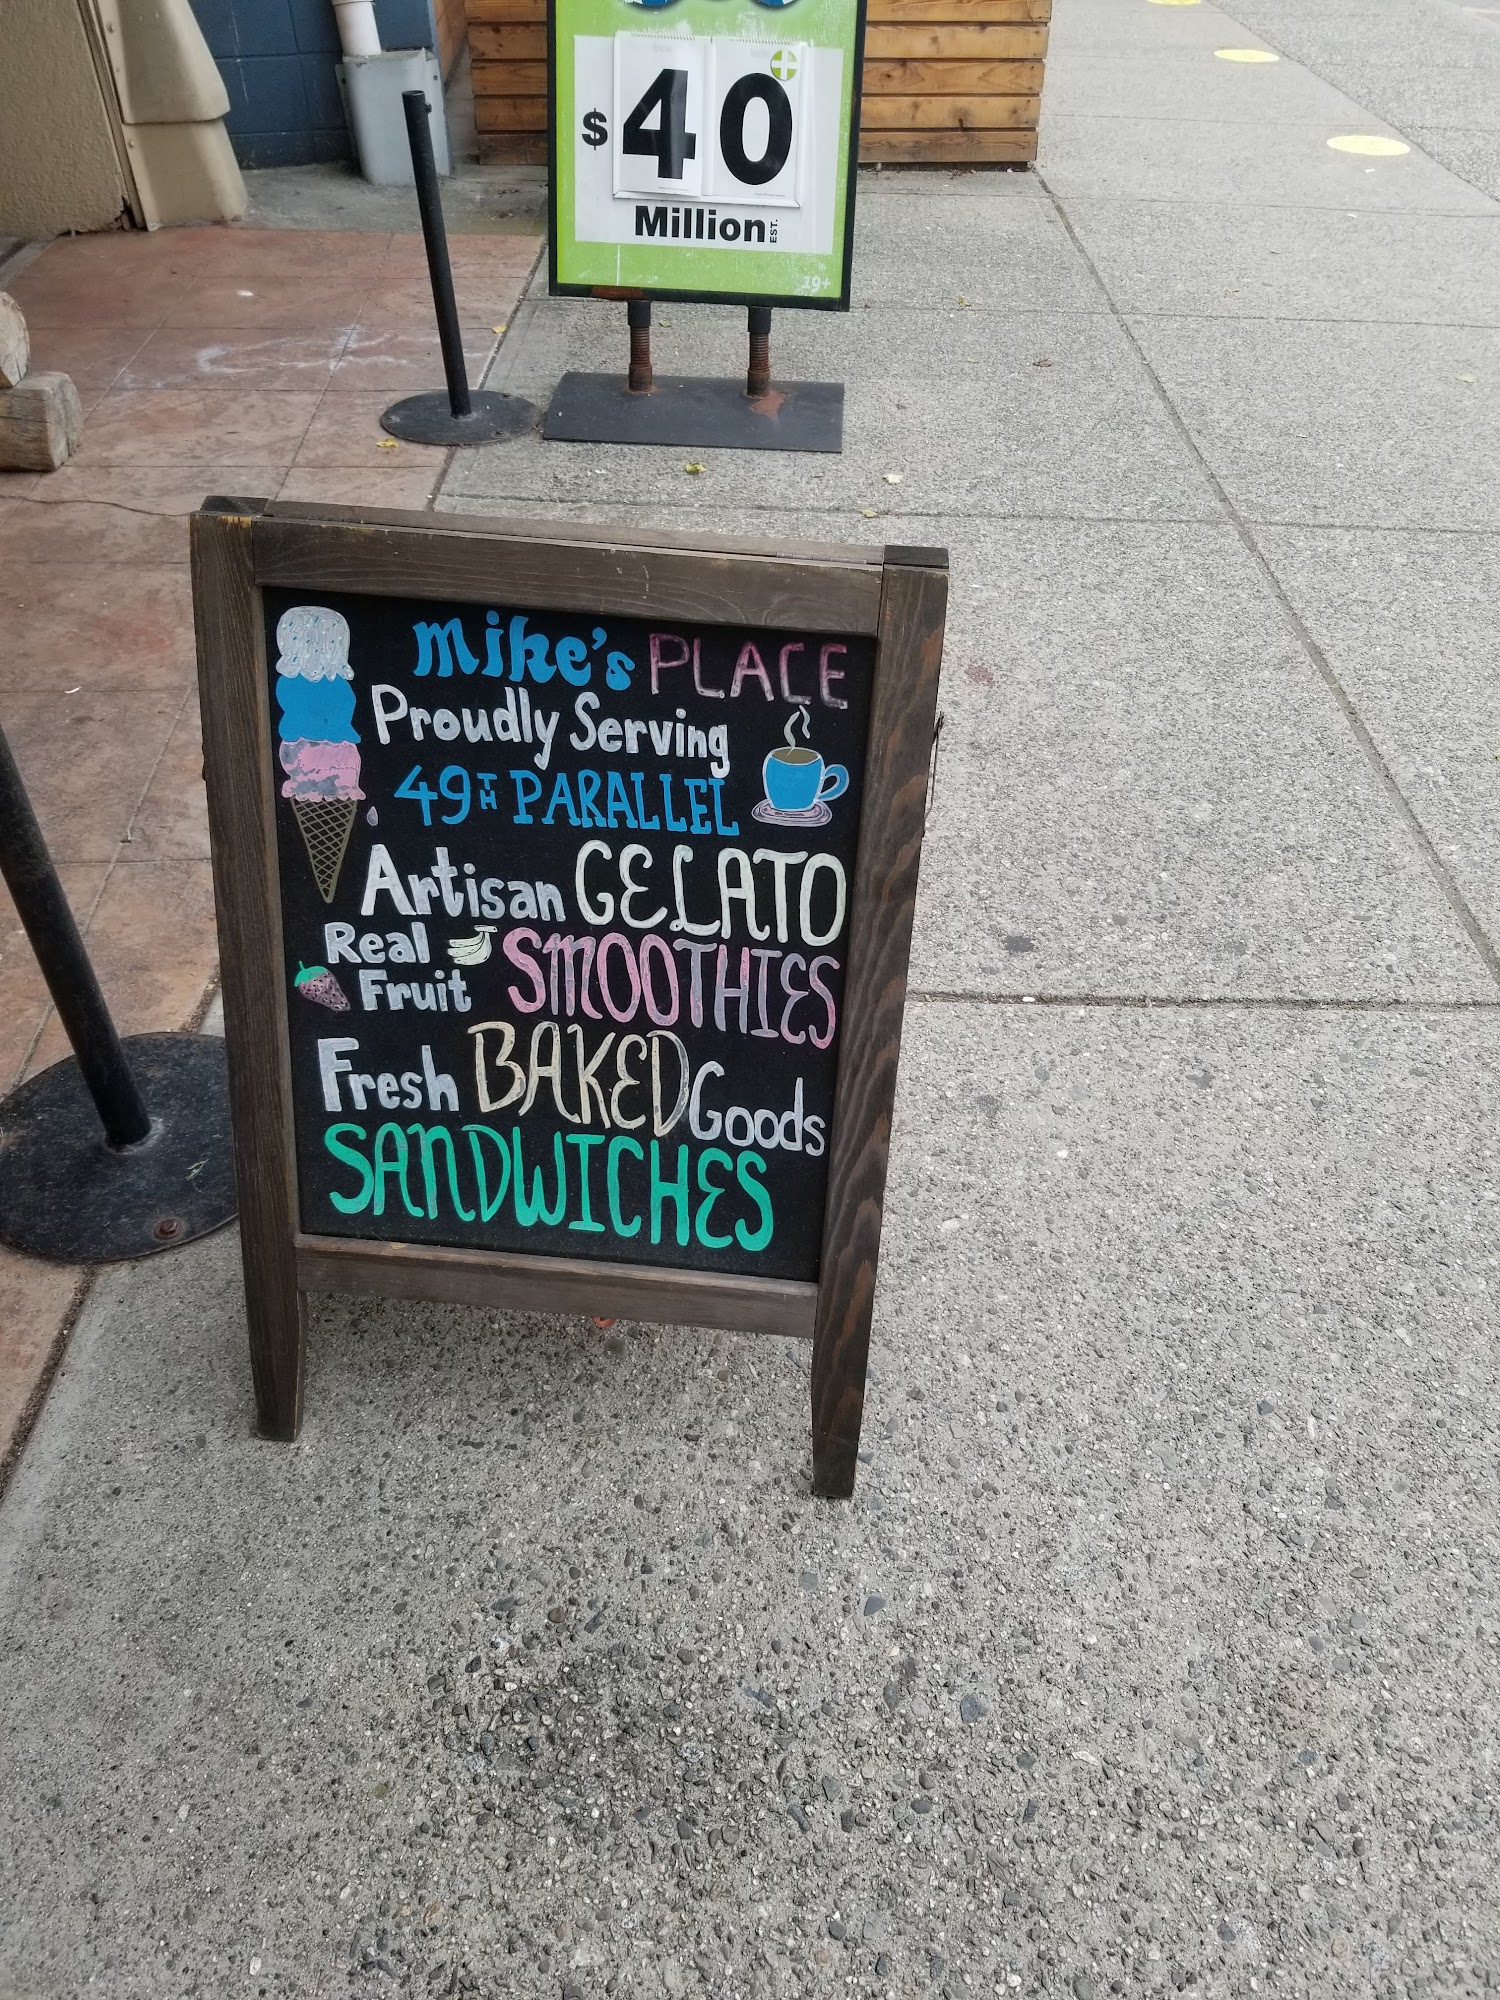 $40
Million EST.
19+
Mike's PLACE
Proudly Serving
49TH PARALLEL
Artisan GELATO
Real
Fruit SMOOTHIES
Fresh BAKED Goods
SANDWICHES